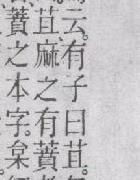 云有子曰苴
苴麻之有蕡
蕡之本字枲